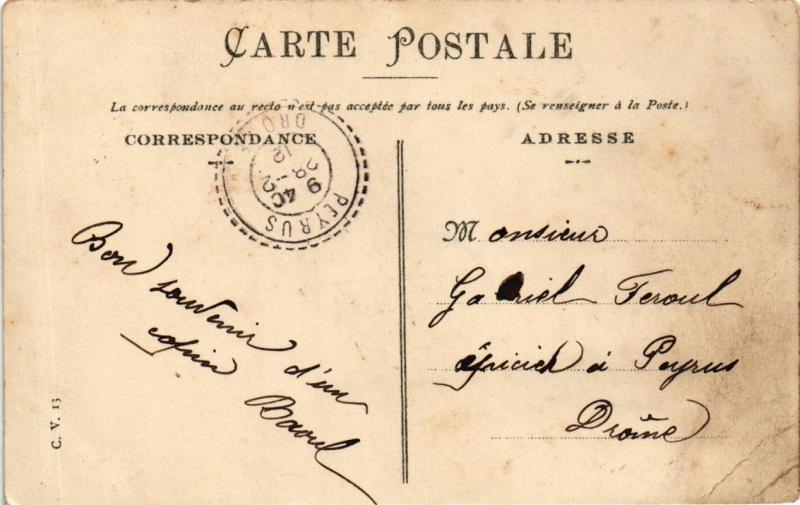 CARTE POSTALE
La correspondance au recto n'est pas acceptée par tous les pays. (Se renseigner à la Poste.)
CORRESPONDANCE
PEYRUS
Bon souvenir d'un
copin Raoul
C. V. 13
ADRESSE
Monsieur
Gabriel Feroul
épicier à Peyrus
Drôme